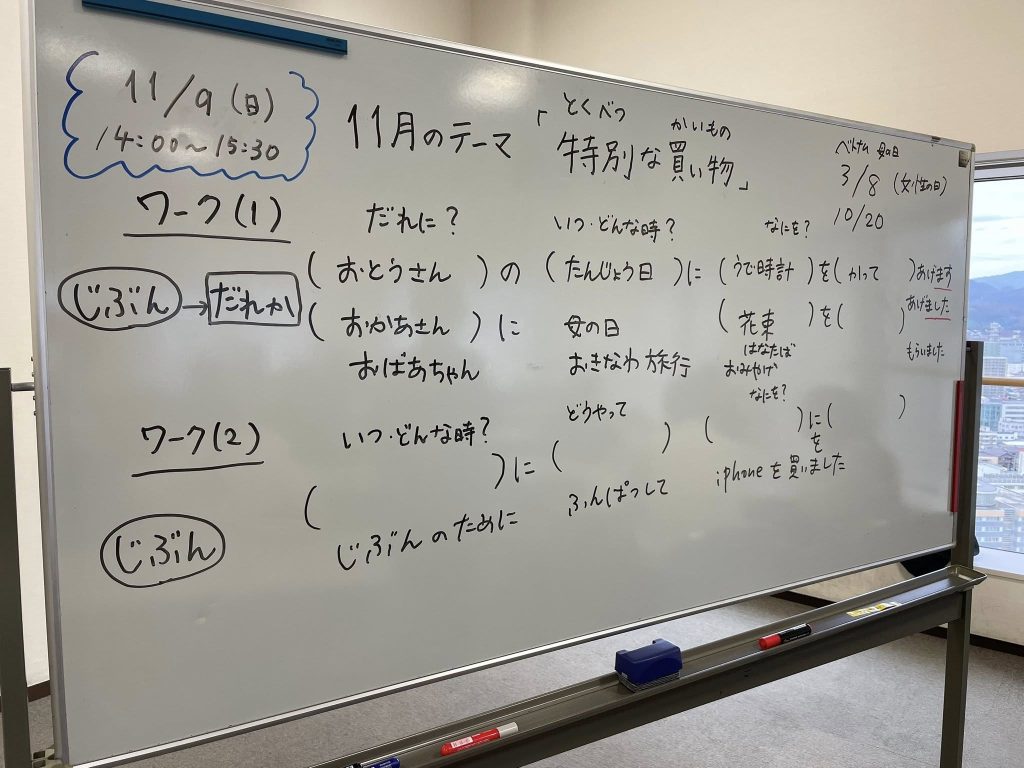 11/9(日)
14:00～15:30
11月のテーマ「特別な買い物」
とくべつ かいもの
ベトナム 母の日
3/8 (女性の日)
10/20
ワーク(1)
だれに? いつ・どんな時? なにを?
じぶん→だれか
(おとうさん)の(たんじょう日)に(うで時計)を(かって)あげます
(おかあさん)に 母の日 (花束)を( )あげました
はなたば
おばあちゃん おきなわ旅行 おみやげ もらいました
ワーク(2)
いつ・どんな時? どうやって なにを?
じぶん
( )に( )( )に( )
を
じぶんのために ふんぱつして iphoneを買いました